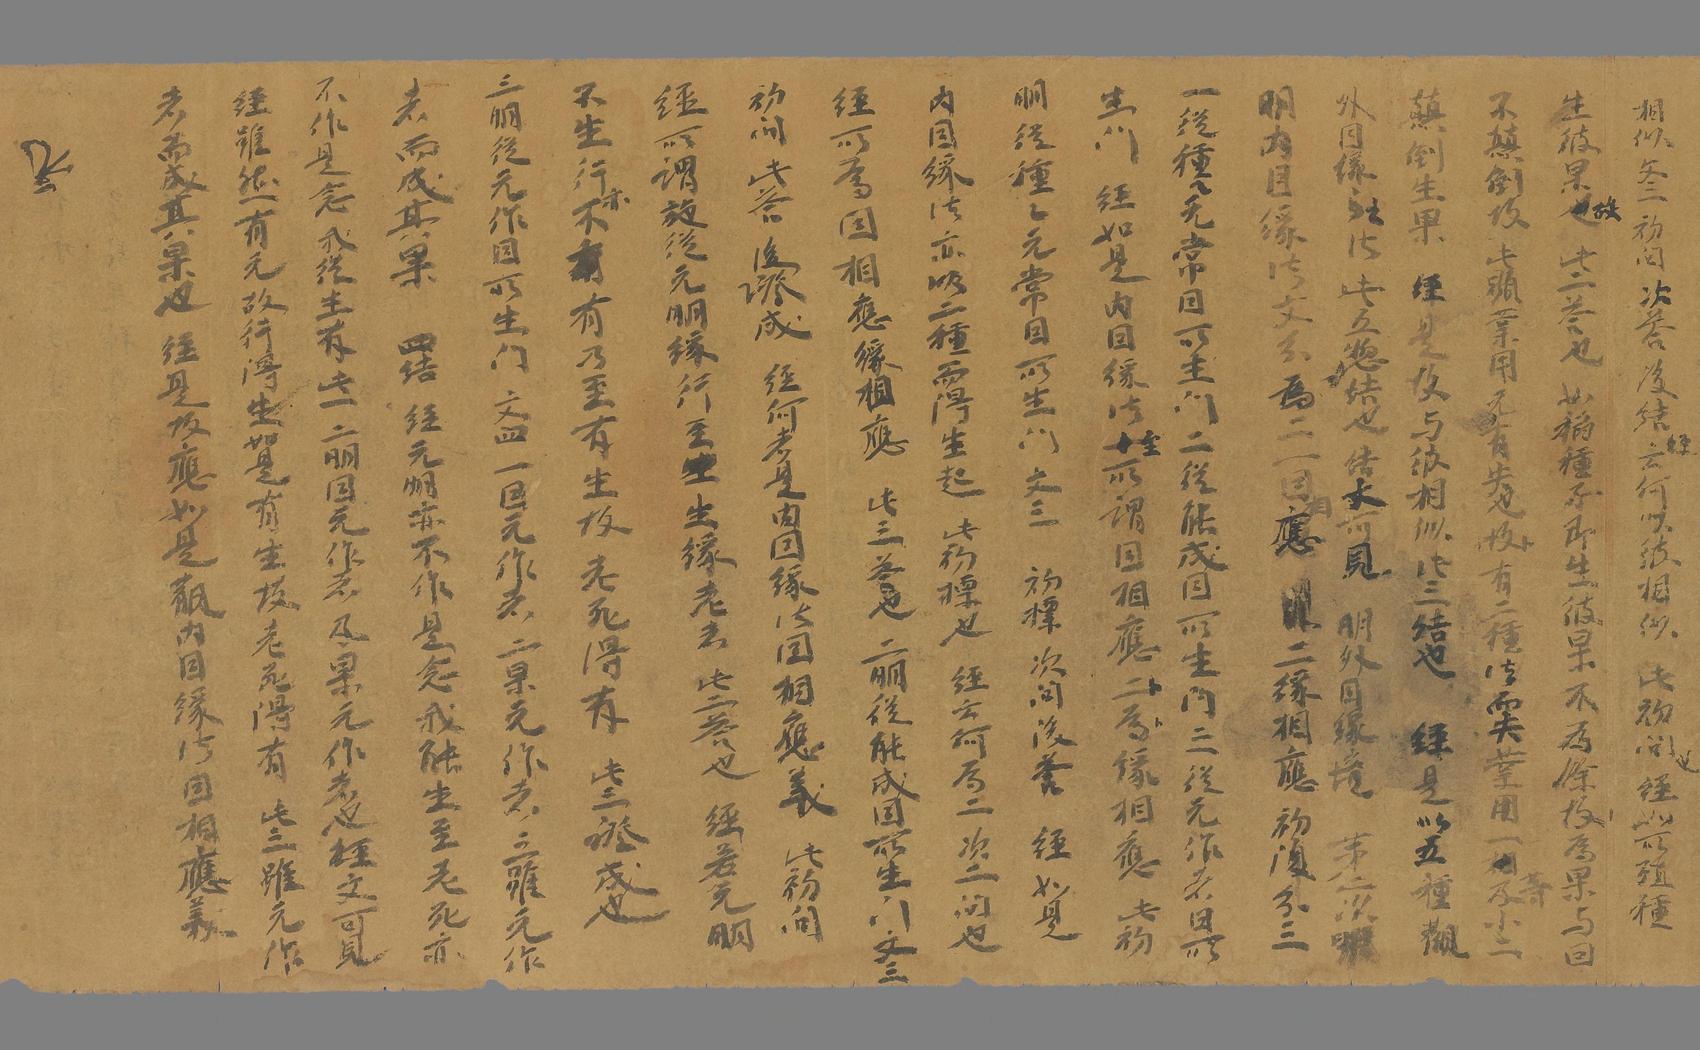 相似文三初问次答後结经云何以彼相似此初问也经如所殖種
生彼果故此二答也如稻種子即生彼果不為餘故為果与因
不顛倒故此顯業用无有失也故有二種法而失業用一相及小二
顛倒生果经是故与彼相似此三结也经是以五種觀
外因缘之法此五惣结也结文可見明外因缘境第二次
明内因缘法文分為二一因相應二缘相應初復分三
一從種種无常因所生门二從能成因所生门三從无作者因所
生门经如是内因缘法至所謂因相應二為缘相應此初
明從種種无常因所生门文三初標次问後答经如是
内因缘法亦以二種而得生起此初標也经云何為二次二问也
经所為因相應缘相應此三答也二明從能成因所生门文三
初问此答後證成经何者是内因缘法因相應義此初问
经所謂施從无明缘行至生缘老者此二答也经若无明
不生行亦不有乃至有生故老死得有此三證成也
三明從无作因所生门文四一因无作者二果无作者三雖无作
者而成其果四结经无明亦不作是念我能生至老死亦
不作是念我從生有此一二明因无作者及果无作者也经文可見
经雖然有无故行得生如是有生故老死得有此三雖无作
者而成其果也经是故應如是觀内因缘法因相應義